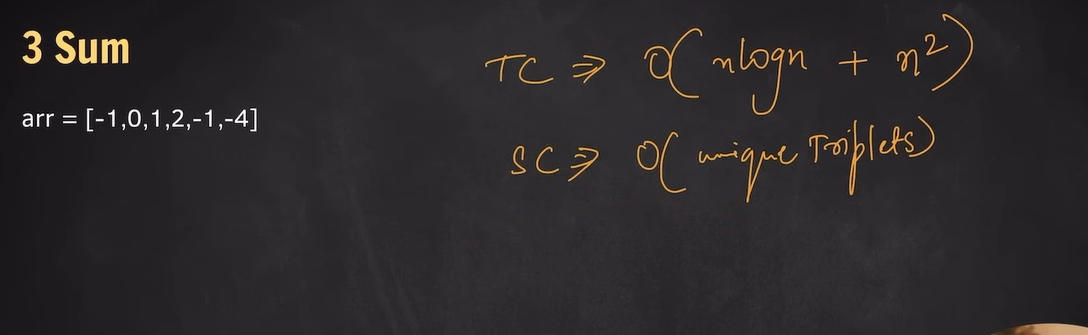 3 Sum
arr = [-1,0,1,2,-1,-4]
TC ⇒ O( nlogn + n²)
SC ⇒ O( unique Triplets)